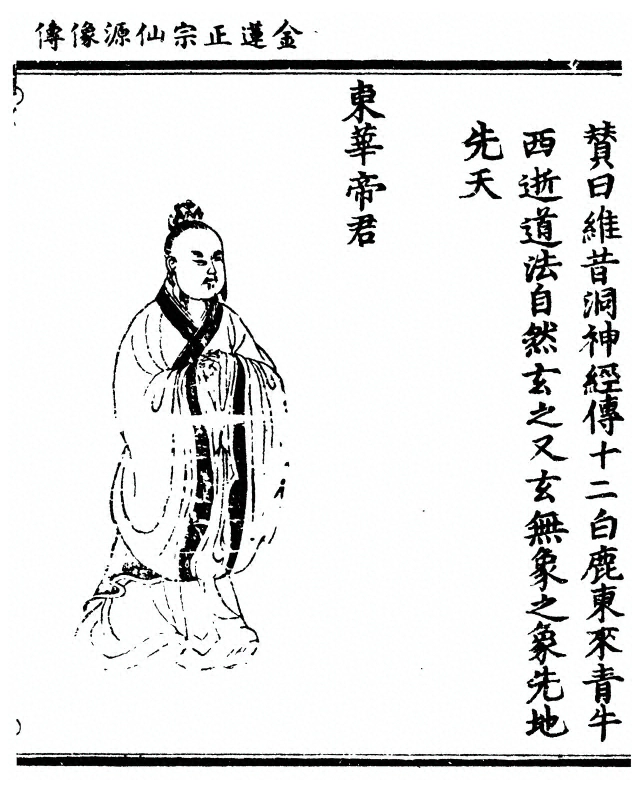 金蓮正宗仙源像傳
贊曰維昔洞神經傳十二白鹿東來青牛
西逝道法自然玄之又玄無象之象先地
先天
東華帝君